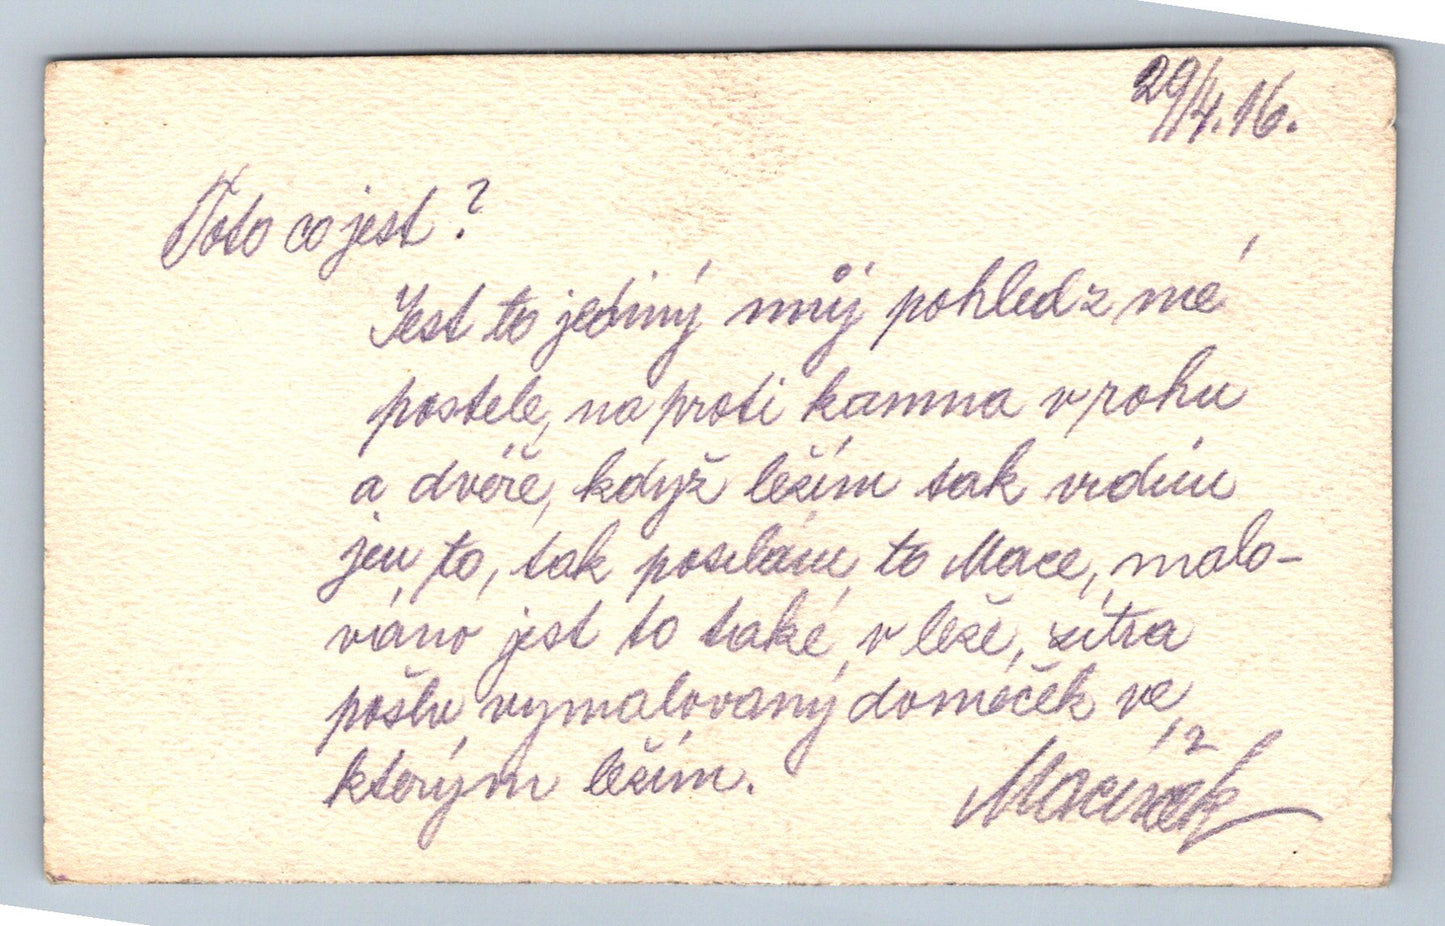 29/4.16.
Toto co jest?
Jest to jediný můj pohled z mé
postele, naproti kamna v rohu
a dvéře, když ležím tak vidím
jen to, tak posílám to Mace, malo-
váno jest to také v leže, zítra
pošlu vymalovaný domeček ve
kterým ležím.